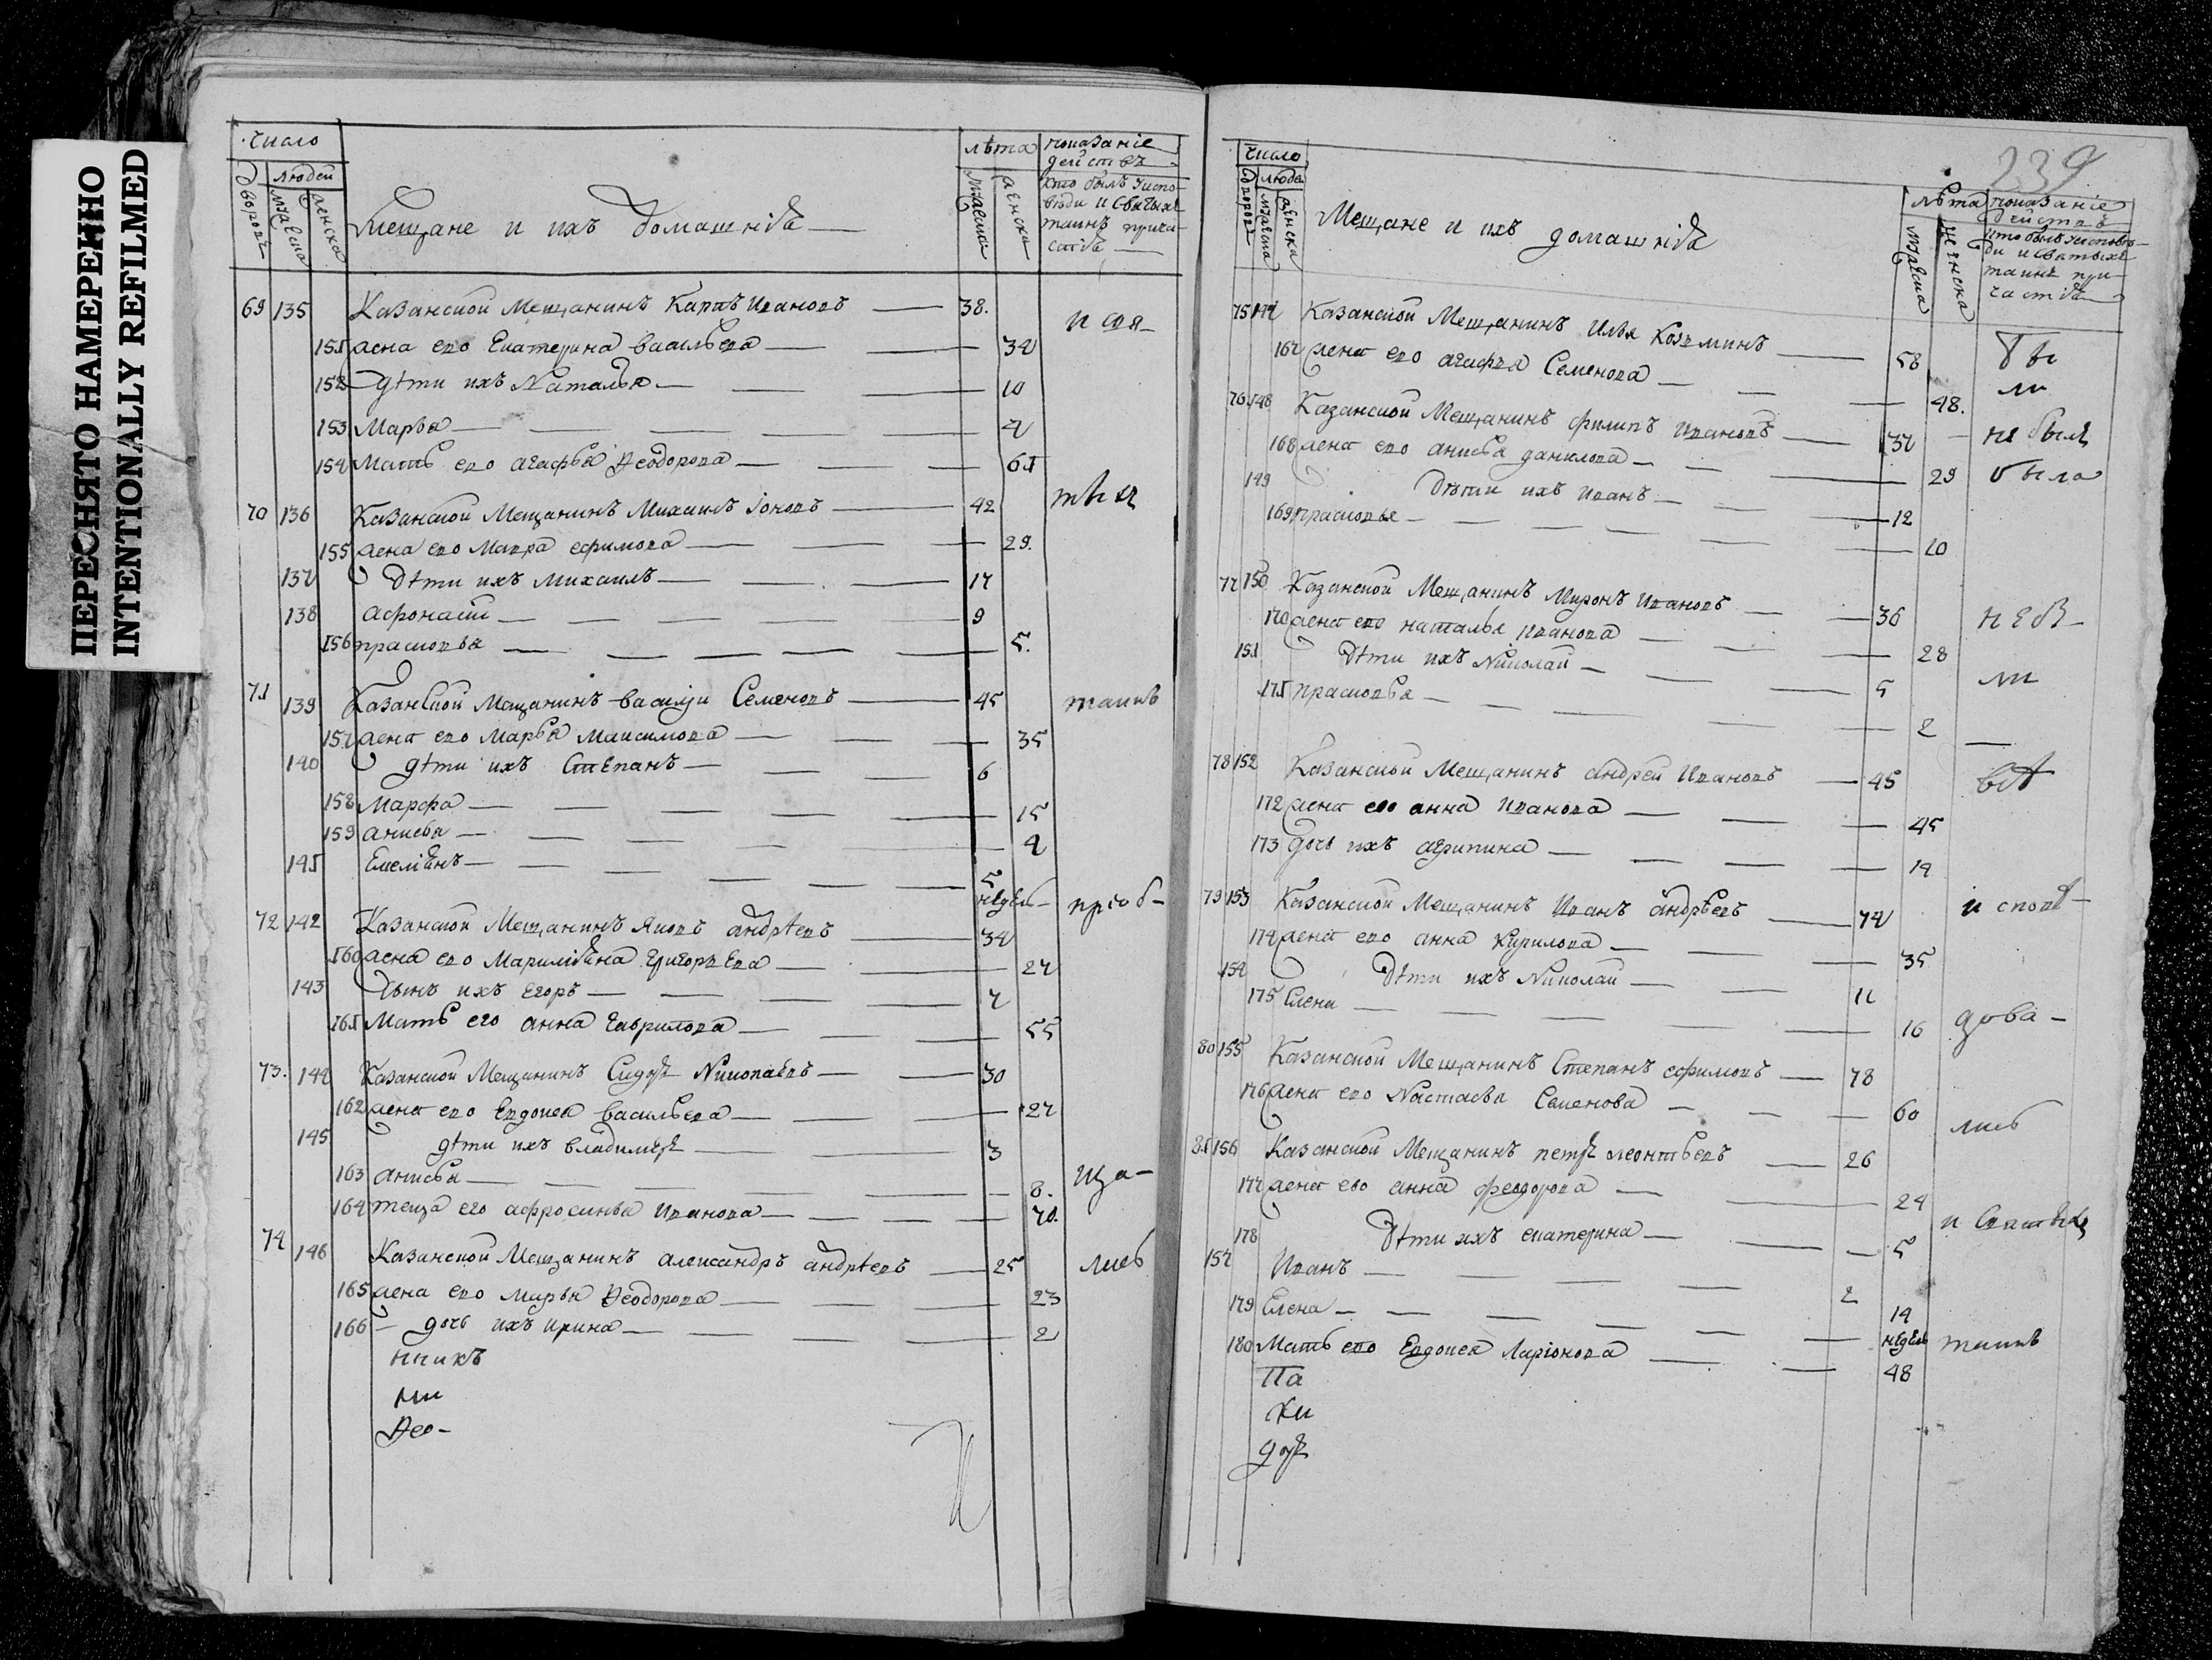 ПЕРЕСНЯТО НАМЕРЕННО
INTENTIONALLY REFILMED
число
дворовъ
людей
мужеска
женска
Мещане и ихъ домашнія
лѣта
мужеска
женска
показаніе действъ
кто былъ у исповѣди и святыхъ таинъ причастія
69 135 Казанской Мещанинъ Карпъ Ивановъ 38. и свя-
151 жена ево Екатерина Васильева 37
152 дѣти ихъ Наталья 10
153 Марья 7
154 Мать ево Агафья Ѳеодорова 61
70 136 Казанской Мещанинъ Михаилъ Іоновъ 42 тых
155 жена ево Мавра Ефимова 29.
137 дѣти ихъ Михаилъ 17
138 Афонасіи 9
156 прасковья 5.
71 139 Казанской Мещанинъ Василіи Семеновъ 45 таинъ
157 жена ево Марья Максимова 35
140 дѣти ихъ Степанъ 6
158 Марфа 15
159 анисья 4
141 Емеліянъ 5 недель
приоб-
72 142 Казанской Мещанинъ Яковъ андрѣевъ 37
160 жена ево Мариміяна григорьева 27
143 Сынъ ихъ Егоръ 7
161 Мать его анна гаврилова 55
73. 144 Казанской Мещанинъ Сидоръ Николаевъ 30
162 жена ево Евдокея Васильева 27
145 дѣти ихъ владимеръ 3
163 анисья 8.
ща-
164 теща его афросинья Иванова 70.
74 146 Казанской Мещанинъ александръ андрѣевъ 25 лись
165 жена ево марья Ѳеодорова 23
166 дочь ихъ ирина 2
нникъ
ми
Ѳео-
239
число
дворовъ
людей
мужеска
женска
Мещане и ихъ домашнія
лѣта
мужеска
женска
показаніе действъ
кто былъ у исповѣди и святыхъ таинъ причастія
75 147 Казанской Мещанинъ Илья Козминъ 58 бы
167 жена ево агафья Семенова 48. ли
76 148 Казанской Мещанинъ филипъ ивановъ 37 не былъ
168 жена ево анисья данилова 29 была
149 дѣти ихъ иванъ 12
169 прасковья 10
77 150 Казанской Мещанинъ Миронъ Ивановъ 36 не бы-
170 жена ево наталья иванова 28
151 дѣти ихъ Николай 5 ли
171 прасковья 2
78 152 Казанской Мещанинъ андрей Ивановъ 45
172 жена ево анна Иванова 45
173 дочь ихъ агрипина 14
79 153 Казанской Мещанинъ Иванъ андрѣевъ 47 исповѣ-
174 жена ево анна кирилова 35
154 дѣти ихъ Николаи 11
175 Елена 16 дова-
80 155 Казанской Мещанинъ Степанъ ефимовъ 78
176 жена ево Настасья Семенова 60 лись
81 156 Казанской Мещанинъ петръ леонтьевъ 26
177 жена ево анна феодорова 24 и святыхъ
178 дѣти ихъ екатерина 5
157 Иванъ 2
179 Елена 14 недель
180 Мать ево Евдокея Ларіонова 48 таинъ
Па
хи
доръ